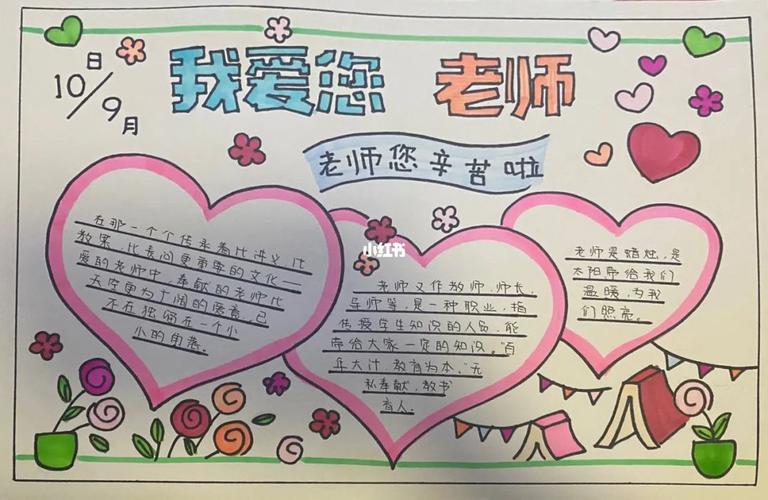 10日/9月
我爱您 老师
老师您辛苦啦
小红书
在那一个个传承着比讲义比
教案、比长河更弟宰的文化——
爱的老师中,奉献的老师比
天空更为广阔的愿意,已
不在独留在一个小
小的角落。
老师又作教师、师长、
导师等,是一种职业,指
传授学生知识的人员,能
带给大家一定的知识。"百
年大计,教育为本。"无
私奉献,教书
育人.
老师是蜡烛,是
太阳带给我们
温暖,为我
们照亮。